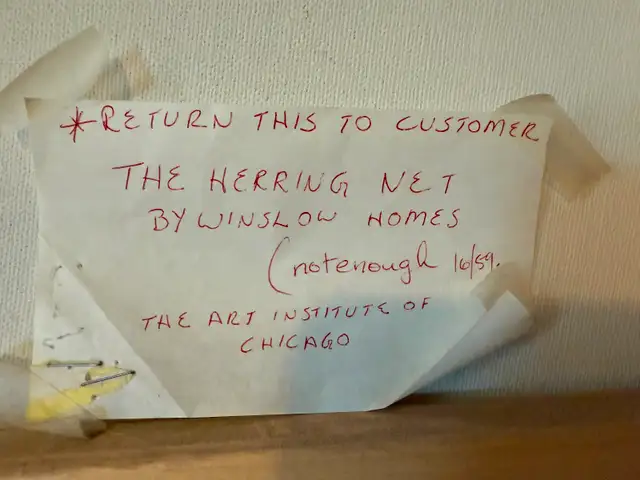 *RETURN THIS TO CUSTOMER
THE HERRING NET
BY WINSLOW HOMES
(notenough 16/59.
THE ART INSTITUTE OF
CHICAGO